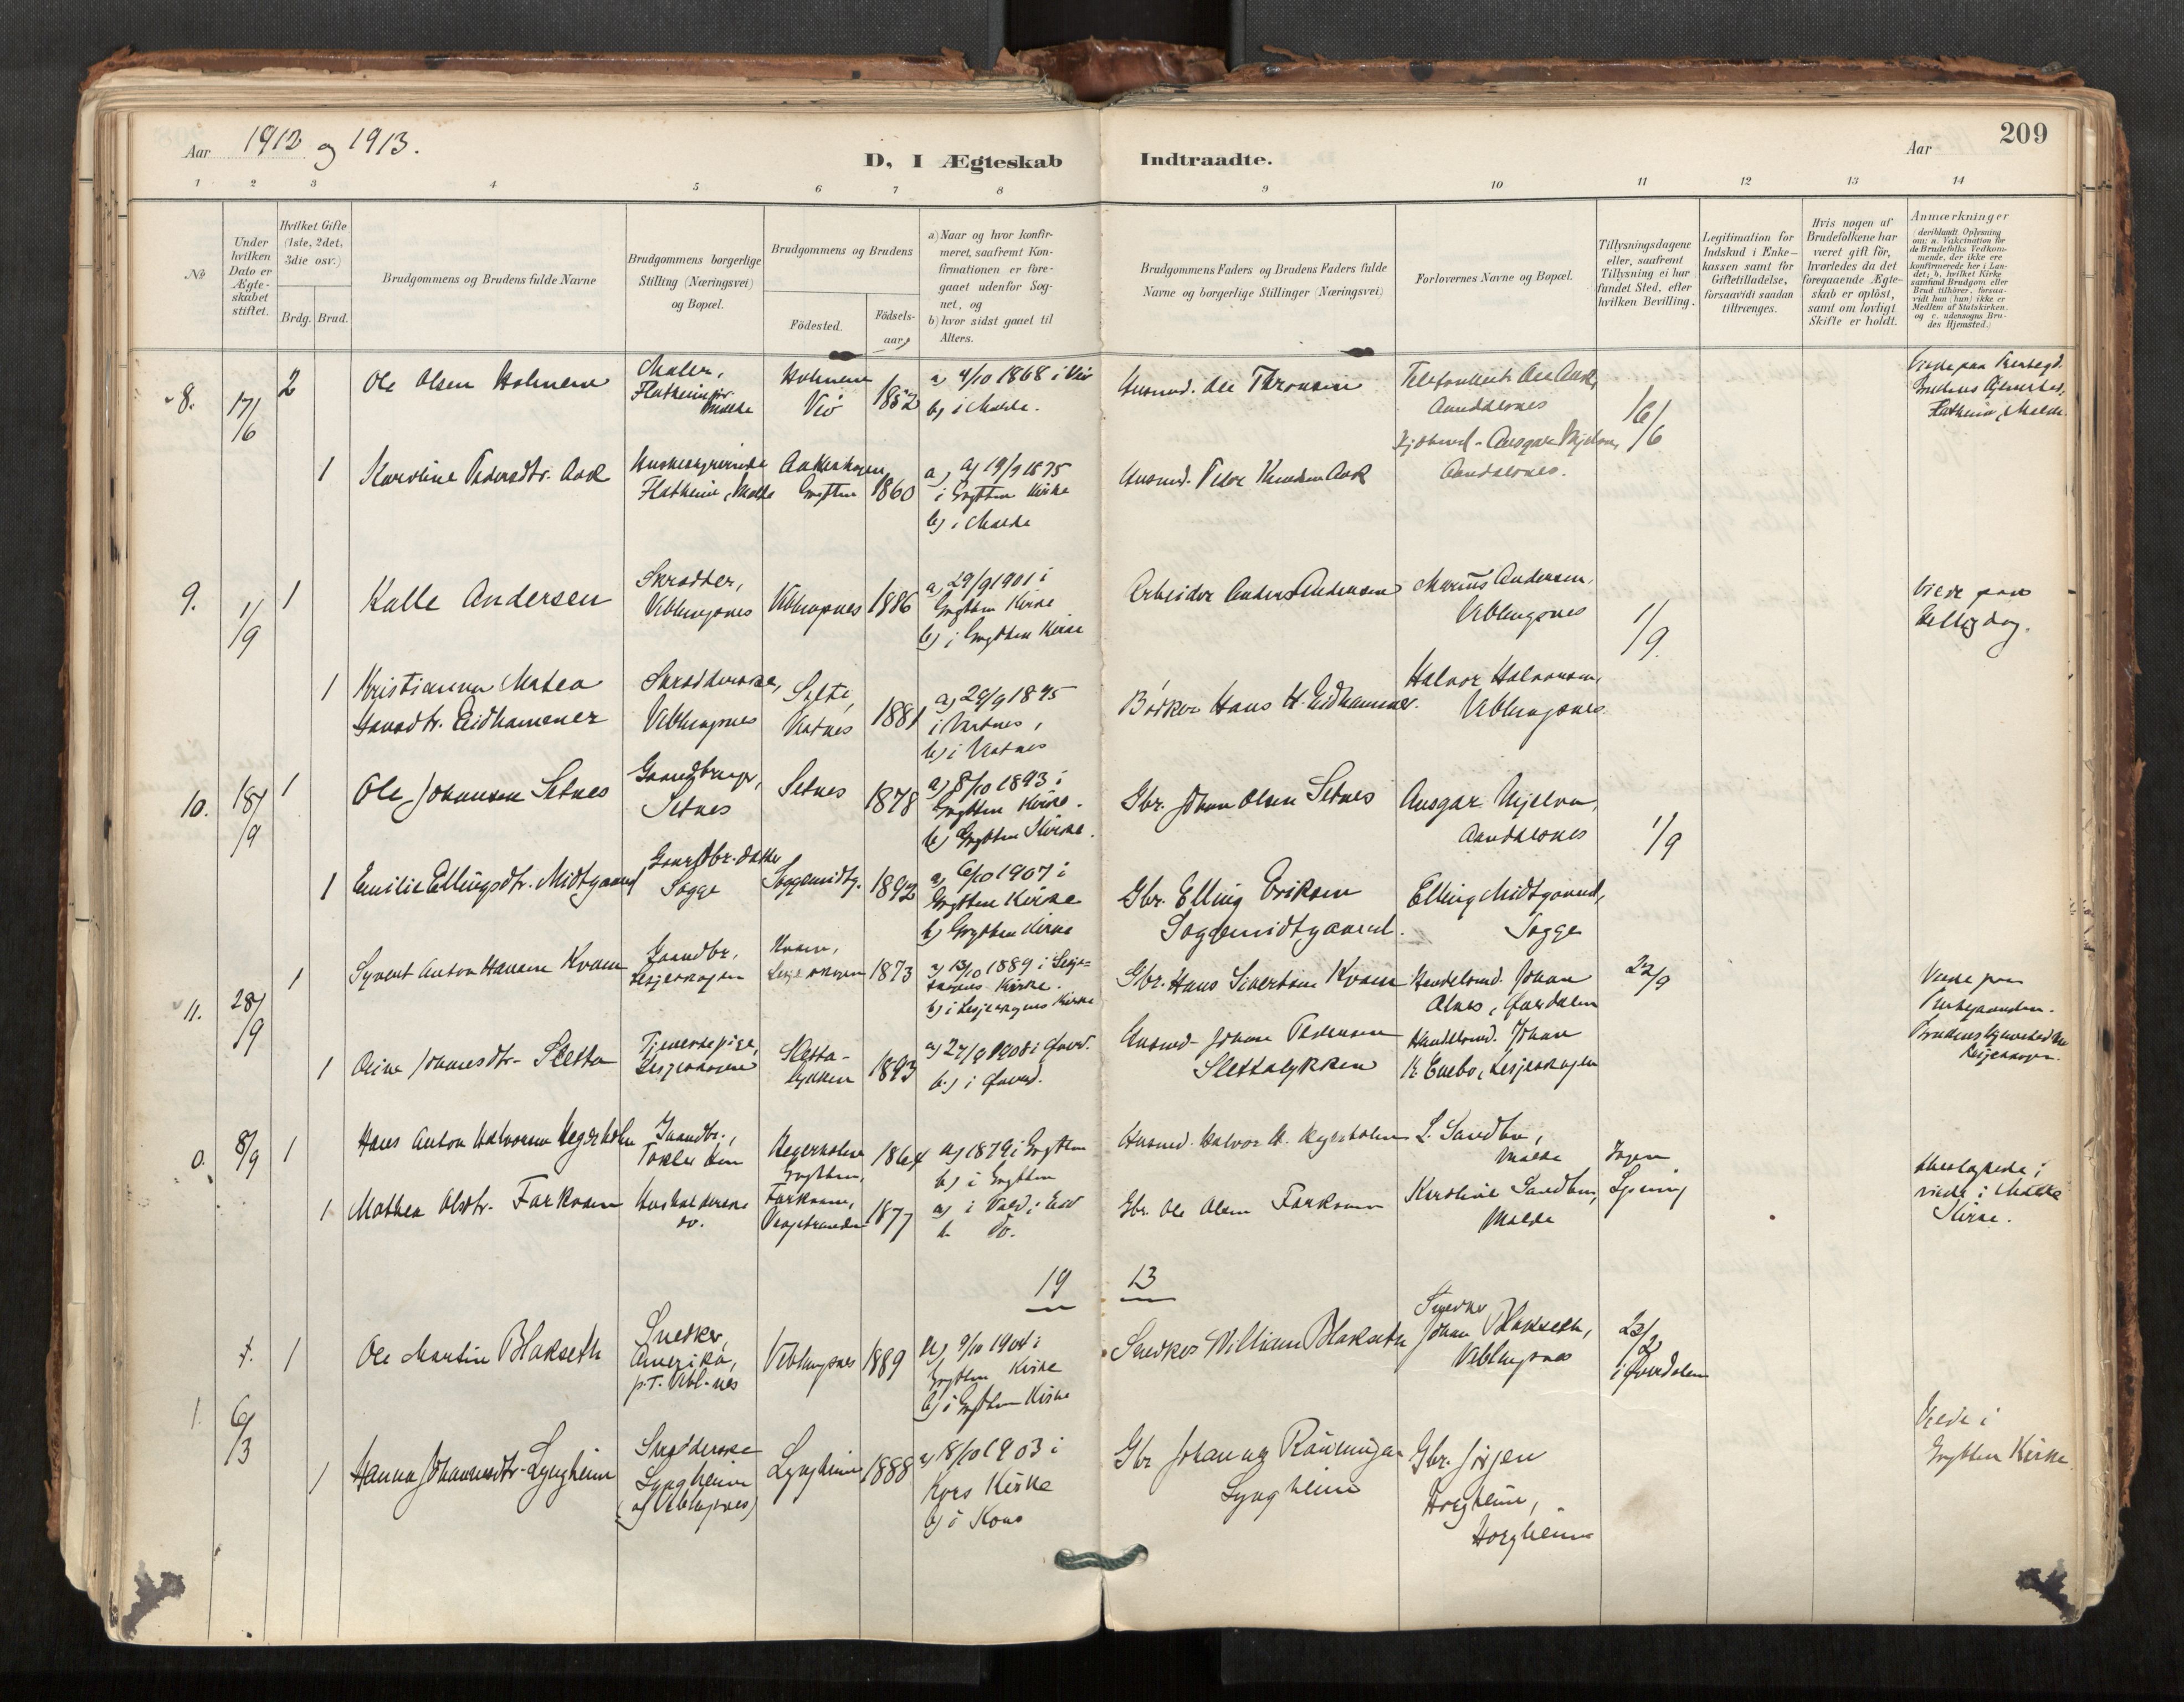 Aar 1912 og 1913.
D, I Ægteskab Indtraadte.
Aar 209
1 2 3 4 5 6 7 8 9 10 11 12 13 14
No
Under hvilken Dato er Ægte-skabet stiftet.
Hvilket Gifte (1ste, 2det, 3die osv.)
Brdg. Brud.
Brudgommens og Brudens fulde Navne
Brudgommens borgerlige Stilling (Næringsvei) og Bopæl.
Brudgommens og Brudens
Födested.
Födsels-aar,
a) Naar og hvor konfir-meret, saafremt Kon-firmationen er fore-gaaet udenfor Sog-net, og
b) hvor sidst gaaet til Alters.
Brudgommens Faders og Brudens Faders fulde Navne og borgerlige Stillinger (Næringsvei)
Forlovernes Navne og Bopæl.
Tillysningsdagene eller, saafremt Tillysning ei har fundet Sted, efter hvilken Bevilling.
Legitimation for Indskud i Enke-kassen samt for Giftetilladelse, forsaavidt saadan tiltrænges.
Hvis nogen af Brudefolkene har været gift för, hvorledes da det foregaaende Ægte-skab er oplöst, samt om lovligt Skifte er holdt.
Anmærkninger (deriblandt Oplysning om: a. Vakcination for de Brudefolks Vedkom-mende, der ikke ere konfirmerede her i Lan-det; b. hvilket Kirke samfund Brudgom eller Brud tilhörer, forsaa-vidt han (hun) ikke er Medlem af Statskirken, og c. udensogns Bru-des Hjemsted.)
8. 17/6 2 Ole Olsen Holmem
Maler, Flatheim pr. Molde
Holmem Veö 1852
a) 4/10 1868 i Veö
b) i Molde.
Husmd. Ole Thronsen
Aandalsnes
Ansgar
Aandalsnes.
16/6
Flatheim, Molde.
1 Karoline Pedersdtr. Aak
Flatheim, Molde
Grytten 1860
a) 19/9 1875
i Grytten Kirke
b) i Molde
Husmd. Peder Knudsen Aak
9. 1/9 1 Kalle Andersen
Skrædder, Veblungsnes
Veblungsnes 1886
a) 29/9 1901 i
Grytten Kirke
b) i Grytten Kirke
Arbeider Anders Andersen
Marius Andersen, Veblungsnes
1/9
Viede paa
Helligdag.
1 Kristianna Matea
Hansdtr. Eidhammer
Veblungsnes
Sylte, Vestnes 1881
a) 29/9 1895
i Vestnes,
b) i Vestnes
Bødker Hans H. Eidhammer.
Halvor Halvorsen, Veblungsnes.
10. 18/9 1 Ole Johansen Setnes
Gaardbruger, Setnes
Setnes 1878
a) 8/10 1893 i
Grytten Kirke.
b) Grytten Kirke.
Gbr. Johan Olsen Setnes
Ansgar
Aandalsnes
1/9
1 Emilie Ellingsdtr. Midtgaard
Gaardbr. datter Sogge
Soggemidtg. 1892
a) 6/10 1907 i
Grytten Kirke
b) Grytten Kirke
Gbr. Elling Eriksen
Soggemidtgaard.
Elling Midtgaard, Sogge
11. 28/9 1 Syvert Anton Hansen Kvam
Gaardbr., Lesjeskogen
Kvam, Lesjeskogen 1873
a) 13/10 1889 i Lesje-
Kirke.
b) i Lesjeskogens Kirke
Gbr. Hans Sivertsen Kvam
Handelsmd. Johan
Alnes,
22/9
1 Oline Johansdtr. Sletta
Tjenestepige, Lesjeskogen
Sletta-lykken 1893
Husmd. Johan Pedersen
Slettalykken
Handelsmd. Johan
K. Enebo, Lesjeskogen
Lesjeskogen.
0. 8/9 1 Hans Anton Halvorsen Hegerholm
Gaardbr.,
Hegerholm Grytten, 1864
a) 1879 i Grytten
b) i Grytten
Husmd. Halvor H. Hegerholm
L. Sandbu, Molde
Ingen
Lysning
viede i Molde
Kirke.
1 Mathea Olsdtr. Farkvam
Husholderske do.
Farkvam, Vaagstranden 1877
b. do.
Gbr. Ole Olsen Farkvam
Karoline Sandbu, Molde
19 13
1. 6/3 1 Ole Martin Blakseth
Snedker, Amerika, p.T. Vebl-nes
Veblungsnes 1889
a) 9/10 1904 i
Grytten Kirke
b) i Grytten Kirke
Snedker William Blakseth
Snedker Johan Blakseth, Veblungsnes
23/2
Viede i
Grytten Kirke.
1 Hanna Johannesdtr. Lyngheim
Lyngheim
(af Veblungsnes)
Lyngheim 1888
a) 18/10 1903 i
Kors Kirke
b) i Kors
Gbr. Johannes
Lyngheim
Gbr. Jörgen
Horgheim,
Horgheim